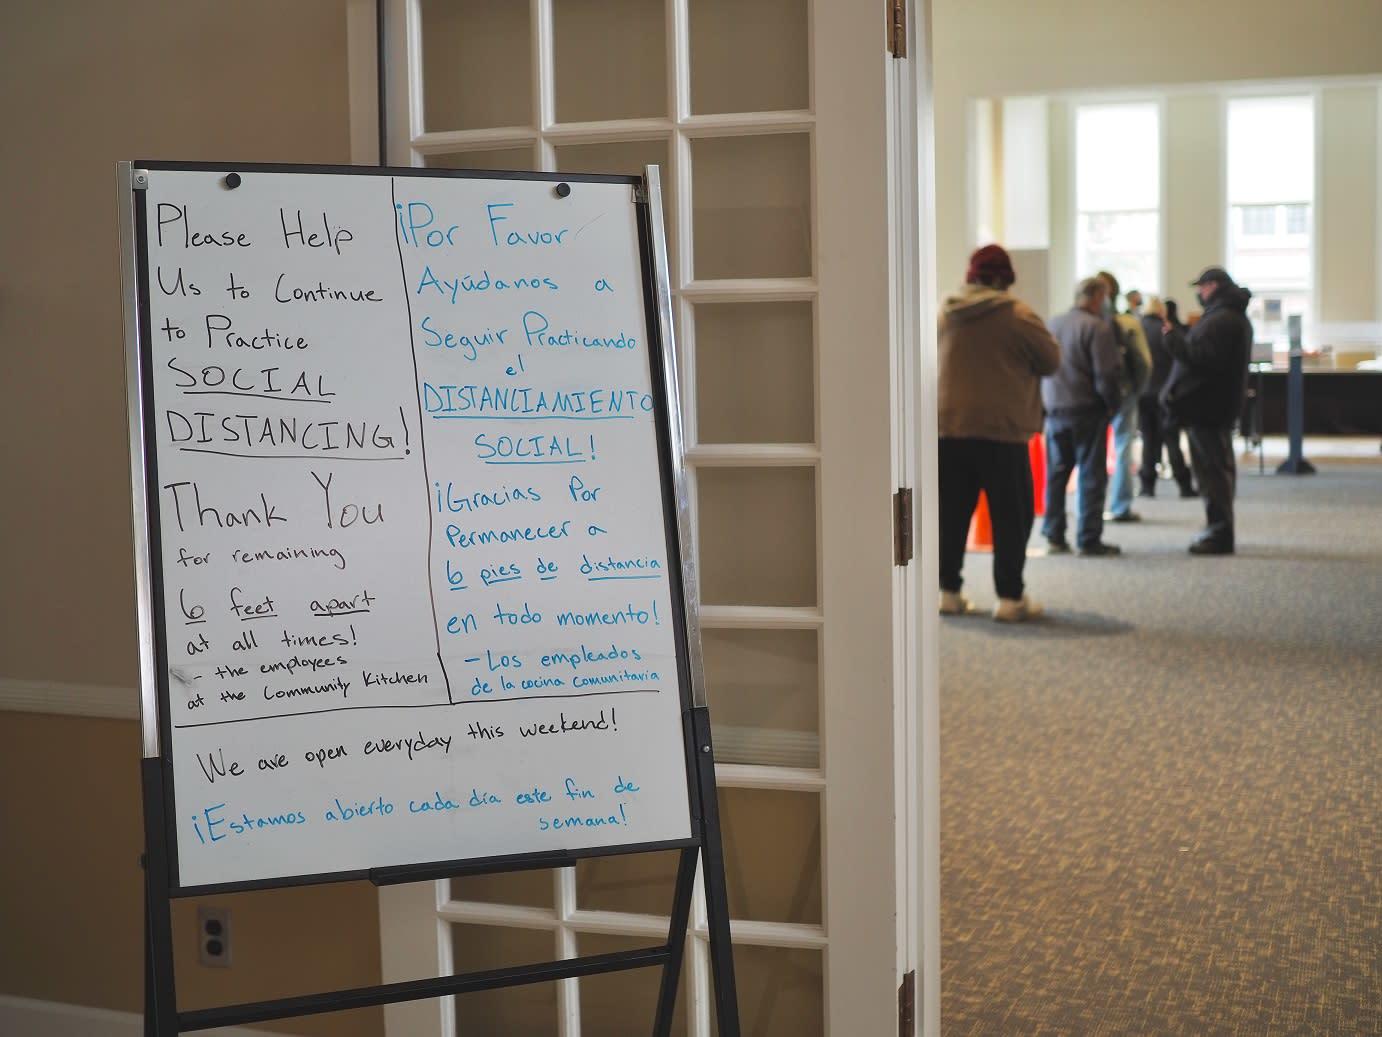 Please Help
Us to Continue
to Practice
SOCIAL
DISTANCING!
Thank You
for remaining
6 feet apart
at all times!
- the employees
at the Community Kitchen
¡Por Favor
Ayúdanos a
Seguir Practicando
el
DISTANCIAMIENTO
SOCIAL!
¡Gracias Por
Permanecer a
6 pies de distancia
en todo momento!
- Los empleados
de la cocina comunitaria
We are open everyday this weekend!
¡Estamos abierto cada día este fin de
semana!